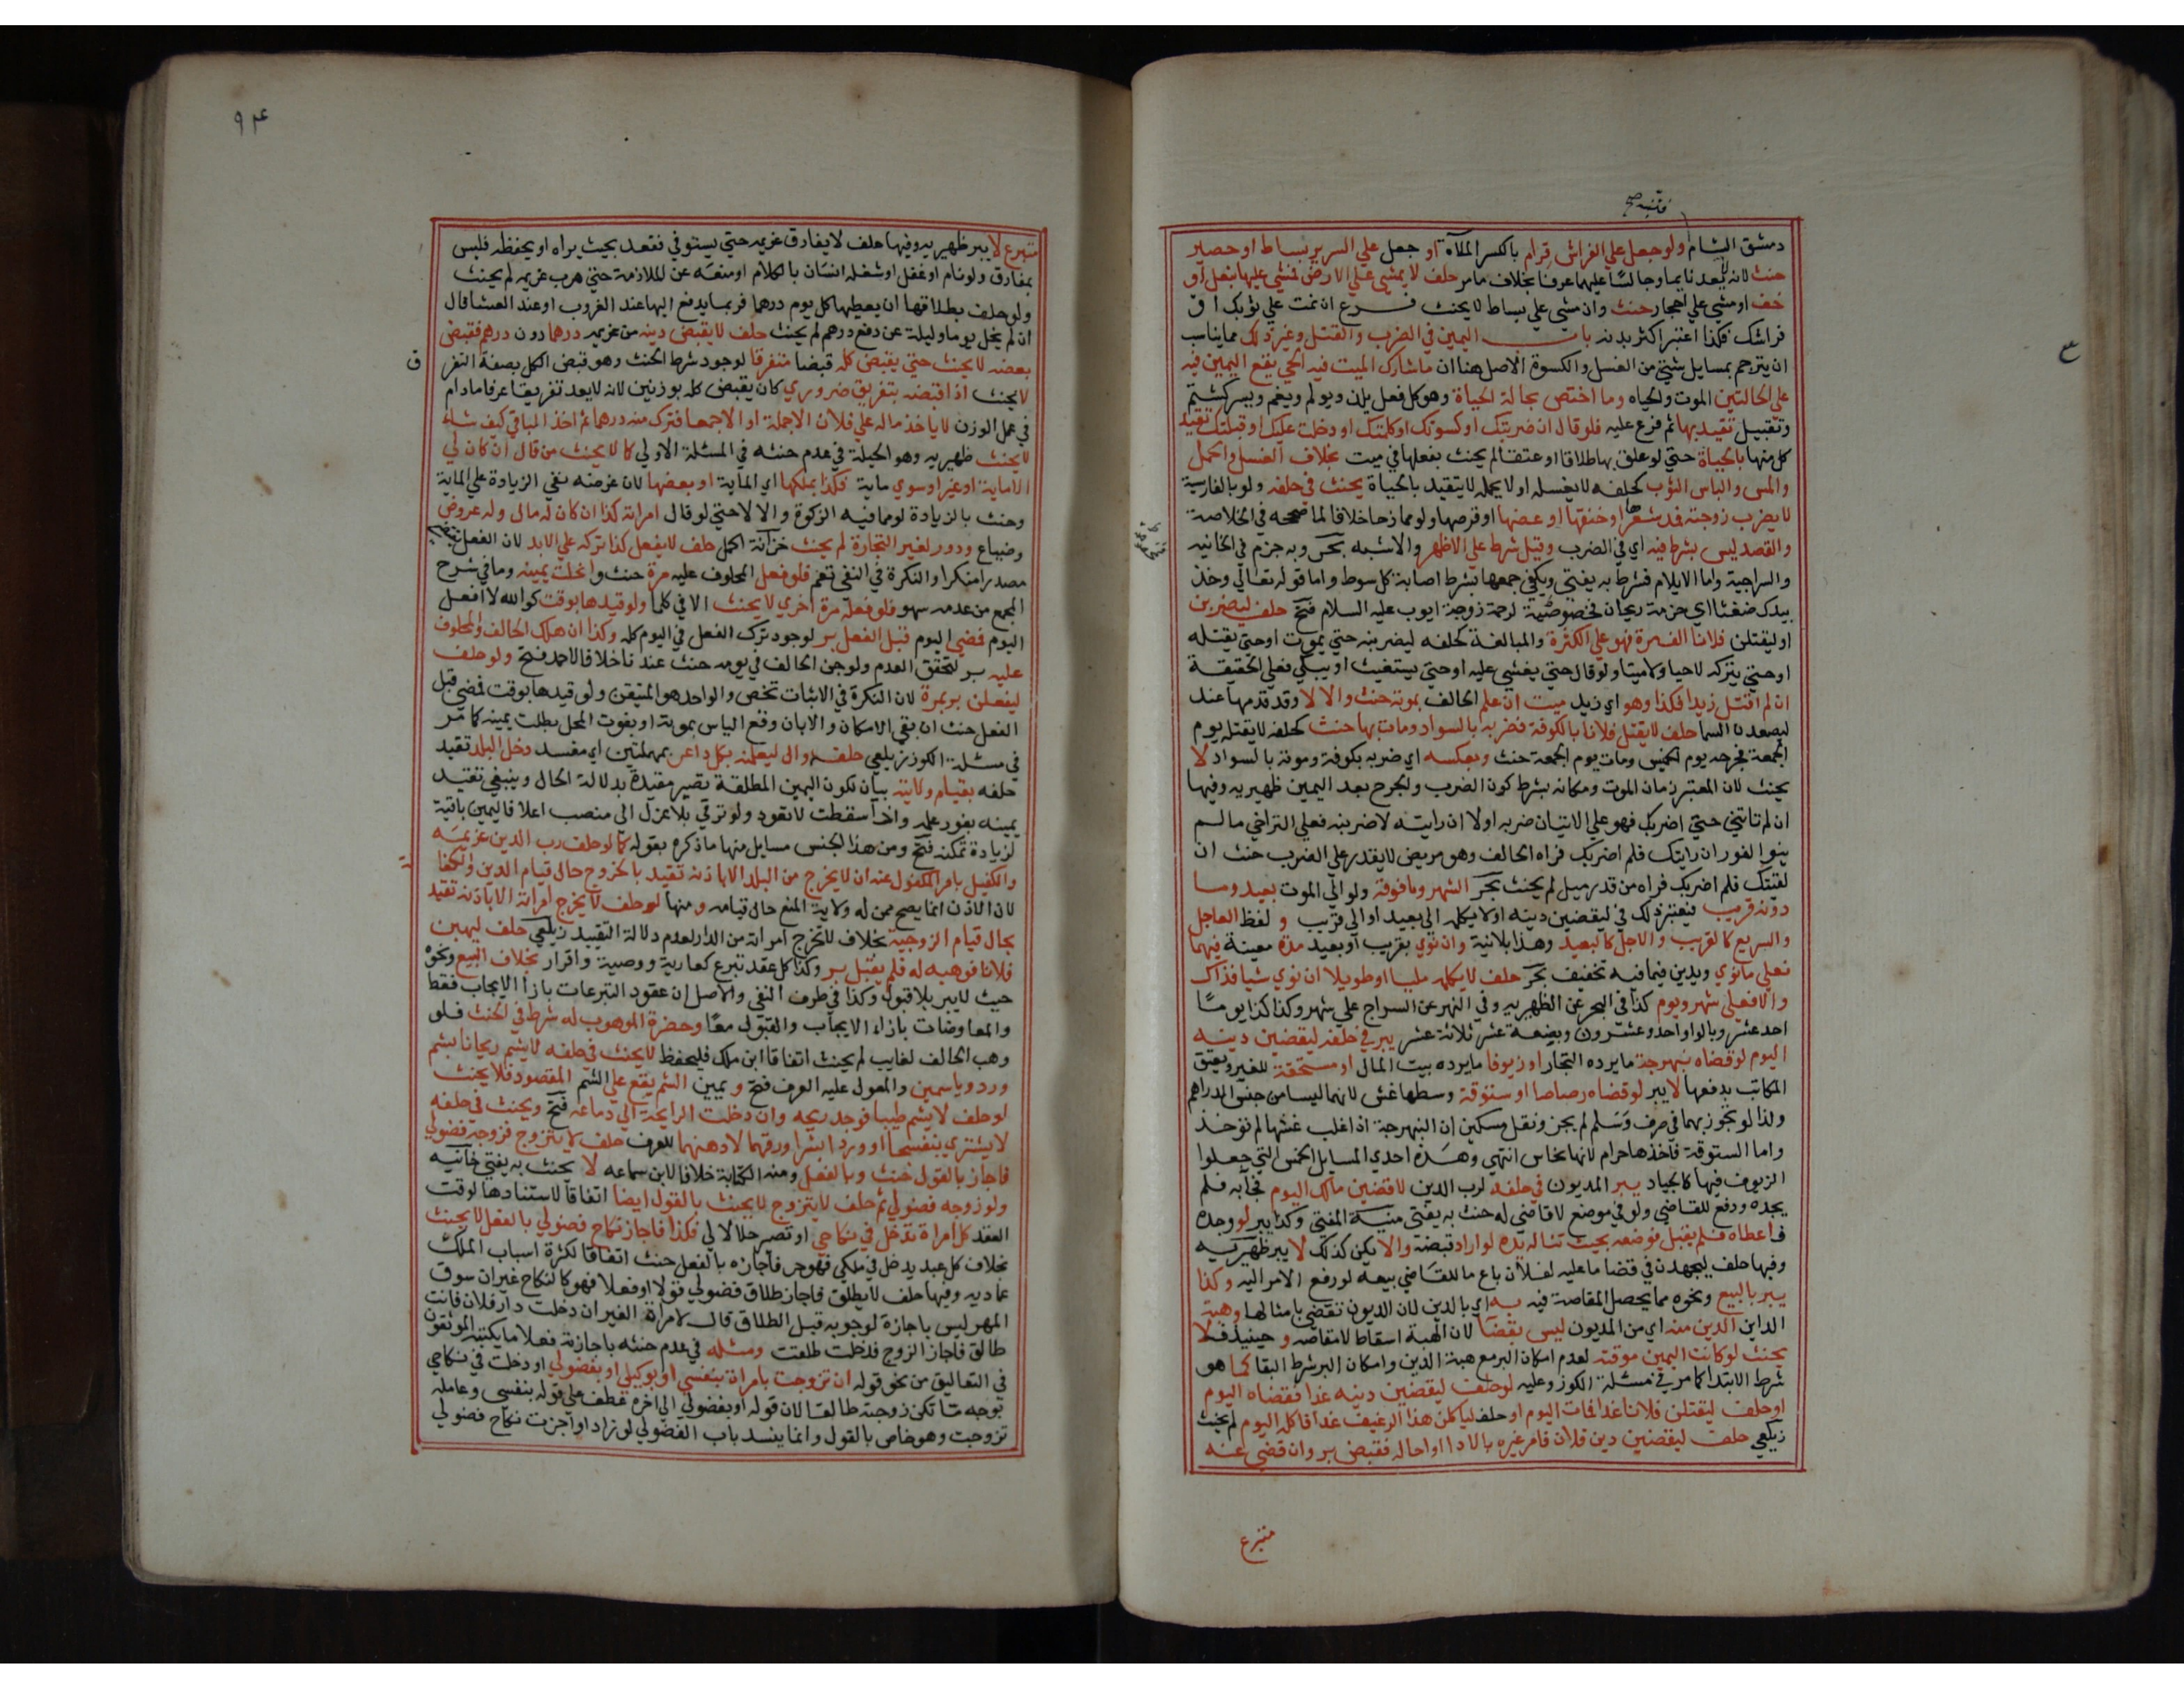 فتنبه صح
دمشق الشام ولو جعل علي الفراش قرام بالكسر الملاة او جعل علي السرير بساط او حصير
حنث لانه يعد نايما وجالسا عليهما عرفا بخلاف ما مر حلف لا يمشي علي الارض فمشي عليها بنعل او
خف او مشي علي احجار حنث وان مشي علي بساط لا يحنث فرع ان نمت علي ثوبك او
فراشك فكذا اعتبر اكثر بدنه باب اليمين في الضرب والقتل وغير ذلك مما يناسب
ان يترجم بمسايل شتي من الغسل والكسوة الاصل هنا ان ما شارك الميت فيه الحي يقع اليمين فيه
علي الحالتين الموت والحياه وما اختص بحالة الحياة وهو كل فعل يلذ ويولم ويغم ويسر كشتم
وتقبيل تقيد بها ثم فرع عليه فلو قال ان ضربتك او كسوتك او كلمتك او دخلت عليك او قبلتك تقيد
كل منها بالحياة حتي لو علق بها طلاقا او عتقا لم يحنث بفعلها في ميت بخلاف الغسل والحمل
والمس والباس الثوب كحلفه لا يغسله او لا يحمله لا يتقيد بالحياة يحنث في حلفه ولو بالفارسية
لا يضرب زوجته فمد شعرها او خنقها او عضها او قرصها ولو ممازحا خلافا لما صححه في الخلاصة
والقصد ليس بشرط فيه اي في الضرب وقيل شرط علي الاظهر والاشبه بحر وبه جزم في الخانيه
والسراجية واما الايلام فشرط به يفتي ويكفي جمعها بشرط اصابة كل سوط واما قوله تعالي وخذ
بيدك ضغثا اي حزمة ريحان فخصوصية لرحمة زوجة ايوب عليه السلام فتح حلف ليضربن
او ليقتلن فلانا الف مرة فهو علي الكثرة والمبالغة كحلفه ليضربنه حتي يموت او حتي يقتله
او حتي يتركه لا حيا ولا ميتا ولو قال حتي يغشي عليه او حتي يستغيث او يبكي فعلي الحقيقة
ان لم اقتل زيدا فكذا وهو اي زيد ميت ان علم الحالف بموته حنث والا لا وقد قدمها عند
ليصعدن السما حلف لا يقتل فلانا بالكوفة فضربه بالسواد ومات بها حنث كحلفه لا يقتله يوم
الجمعة فجرحه يوم الخميس ومات يوم الجمعة حنث وبعكسه اي ضربه بكوفة وموته بالسواد لا
يحنث لان المعتبر زمان الموت ومكانه بشرط كون الضرب والجرح بعد اليمين ظهيريه وفيها
ان لم تاتني حتي اضربك فهو علي الاتيان ضربه او لا ان رايته لاضربنه فعلي التراخي ما لم
ينو الفور ان رايتك فلم اضربك فراه الحالف وهو مريض لا يقدر علي الضرب حنث ان
لقيتك فلم اضربك فراه من قدر ميل لم يحنث بحر الشهر وما فوقه ولو الي الموت بعيد وما
دونه قريب فيعتبر ذلك في ليقضين دينه او لا يكلمه الي بعيد او الي قريب و لفظ العاجل
والسريع كالقريب والاجل كالبعيد وهذا بلا نية وان نوي بقريب او بعيد مدة معينة فيهما
فعلي ما نوي ويدين فيما فيه تخفيف بحر حلف لا يكلمه مليا او طويلا ان نوي شيا فذاك
والا فعلي شهر ويوم كذا في البحر عن الظهيريه وفي النهر عن السراج علي شهر وكذا كذا يوما
احد عشر وبالواو احد وعشرون وبضعة عشر ثلاثة عشر يبر في حلفه ليقضين دينه
اليوم لو قضاه نبهرجة ما يرده التجار او زيوفا ما يرده بيت المال او مستحقة للغير ويعتق
المكاتب بدفعها لا يبر لو قضاه رصاصا او ستوقة وسطها غش لانهما ليسا من جنس الدراهم
ولذا لو تجوز بهما في صرف وسلم لم يجز ونقل مسكين ان النبهرجة اذا غلب غشها لم توخذ
واما الستوقة فاخذها حرام لانها نحاس انتهي وهذه احدي المسايل الخمس التي جعلوا
الزيوف فيها كالجياد يبر المديون في حلفه لرب الدين لاقضين مالك اليوم فجا به فلم
يجده ودفع للقاضي ولو في موضع لا قاضي له حنث به يفتي منية المفتي وكذا يبر لو وجده
فاعطاه فلم يقبل فوضعه بحيث تناله يده لو اراد قبضه والا يكن كذلك لا يبر ظهيريه
وفيها حلف ليجهدن في قضا ما عليه لفلان باع ما للقاضي بيعه لو رفع الامر اليه وكذا
يبر بالبيع ونحوه مما يحصل المقاصة فيه به اي بالدين لان الديون تقضي بامثالها وهبة
الداين الدين منه اي من المديون ليس بقضا لان الهبة اسقاط لا مقاصه و حينيذ فلا
يحنث لو كانت اليمين موقتة لعدم امكان البر مع هبة الدين وامكان البر شرط البقا كما هو
شرط الابتدا كما مر في مسئلة الكوز وعليه لو حلف ليقضين دينه غدا فقضاه اليوم
او حلف ليقتلن فلانا غدا فمات اليوم او حلف لياكلن هذا الرغيف غدا فاكله اليوم لم يحنث
زيلعي حلف ليقضين دين فلان فامر غيره بالادا او احاله فقبض بر وان قضي عنه
متبرع
٩٤
متبرع لا يبر ظهيريه وفيها حلف لا يفارق غريمه حتي يستوفي فقعد بحيث يراه او يحفظه فليس
بمفارق ولو نام او غفل او شغله انسان بالكلام او منعه عن الملازمة حتي هرب غريمه لم يحنث
ولو حلف بطلاقها ان يعطيها كل يوم درهما فربما يدفع اليها عند الغروب او عند العشا قال
ان لم يخل يوما وليلة عن دفع درهم لم يحنث حلف لا يقبض دينه من غريمه درهما دون درهم فقبض
بعضه لا يحنث حتي يقبض كله قبضا متفرقا لوجود شرط الحنث وهو قبض الكل بصفة التفر ق
لا يحنث اذا قبضه بتفريق ضروري كان يقبض كله بوزنين لانه لا يعد تفريقا عرفا ما دام
في عمل الوزن لا ياخذ ماله علي فلان الا جملة او الا جمعا فترك منه درهما ثم اخذ الباقي كيف شاء
لا يحنث ظهيريه وهو الحيلة في عدم حنثه في المسئلة الاولي كما لا يحنث من قال ان كان لي
الا ماية او غير او سوي ماية فكذا بملكها اي الماية او بعضها لان غرضه نفي الزيادة علي الماية
وحنث بالزيادة لو مما فيه الزكوة والا لا حتي لو قال امراته كذا ان كان له مال وله عروض
وضياع ودور لغير التجارة لم يحنث خزانة اكمل حلف لا يفعل كذا تركه علي الابد لان الفعل يقتضي
مصدرا منكرا والنكرة في النفي تعم فلو فعل المحلوف عليه مرة حنث وانحلت يمينه وما في شرح
المجمع من عدمه سهو فلو فعله مرة اخري لا يحنث الا في كلما ولو قيدها بوقت كوالله لا افعل
اليوم فمضي اليوم قبل الفعل بر لوجود ترك الفعل في اليوم كله وكذا ان هلك الحالف والمحلوف
عليه بر لتحقق العدم ولو جن الحالف في يومه حنث عندنا خلافا لاحمد فتح ولو حلف
ليفعلن بر بمرة لان النكرة في الاثبات تخص والواحد هو المتيقن ولو قيدها بوقت فمضي قبل
الفعل حنث ان بقي الامكان والا بان وقع الياس بموته او بفوت المحل بطلت يمينه كما مر
في مسئلة الكوز زيلعي حلفه وال ليعلمنه بكل داعر بمهملتين اي مفسد دخل البلد تقيد
حلفه بقيام ولايته بيان لكون اليمين المطلقة تصير مقيدة بدلالة الحال وينبغي تقييد
يمينه بفور علمه واذا سقطت لا تعود ولو ترقي بلا عزل الي منصب اعلا فاليمين باقية
لزيادة تمكنه فتح ومن هذا الجنس مسايل منها ما ذكره بقوله كما لو حلف رب الدين غريمه
والكفيل بامر المكفول عنه ان لا يخرج من البلد الا باذنه تقيد بالخروج حال قيام الدين والكفا لة
لان الاذن انما يصح ممن له ولاية المنع حال قيامه و منها لو حلف لا يخرج امراته الا باذنه تقيد
بحال قيام الزوجية بخلاف لا تخرج امراته من الدار لعدم دلالة التقييد زيلعي حلف ليهبن
فلانا فوهبه له فلم يقبل بر وكذا كل عقد تبرع كعارية ووصية واقرار بخلاف البيع ونحوه
حيث لا يبر بلا قبول وكذا في طرف النفي والاصل ان عقود التبرعات بازا الايجاب فقط
والمعاوضات بازاء الايجاب والقبول معا وحضرة الموهوب له شرط في الحنث فلو
وهب الحالف لغايب لم يحنث اتفاقا ابن ملك فليحفظ لا يحنث في حلفه لا يشم ريحانا بشم
ورد وياسمين والمعول عليه العرف فتح و يمين الشم يقع علي الشم المقصود فلا يحنث
لو حلف لا يشم طيبا فوجد ريحه وان دخلت الرايحة الي دماغه فتح ويحنث في حلفه
لا يشتري بنفسجا او وردا بشرا ورقهما لا دهنهما للعرف حلف لا يتزوج فزوجه فضولي
فاجاز بالقول حنث وبالفعل ومنه الكتابة خلافا لابن سماعه لا يحنث به يفتي خانيه
ولو زوجه فضولي ثم حلف لا يتزوج لا يحنث بالقول ايضا اتفاقا لاستنادها لوقت
العقد كل امراة تدخل في نكاحي او تصير حلالا لي فكذا فاجاز نكاح فضولي بالفعل لا يحنث
بخلاف كل عبد يدخل في ملكي فهو حر فاجازه بالفعل حنث اتفاقا لكثرة اسباب الملك
عماديه وفيها حلف لا يطلق فاجاز طلاق فضولي قولا او فعلا فهو كالنكاح غير ان سوق
المهر ليس باجازة لوجوبه قبل الطلاق قال لامراة الغير ان دخلت دار فلان فانت
طالق فاجاز الزوج فدخلت طلقت ومثله في عدم حنثه باجازته فعلا ما يكتبه الموثقون
في التعاليق من نحو قوله ان تزوجت بامراة بنفسي او بوكيلي او بفضولي او دخلت في نكاحي
بوجه ما تكن زوجته طالقا لان قوله او بفضولي الي اخره عطف علي قوله بنفسي وعامله
تزوجت وهو خاص بالقول وانما ينسد باب الفضولي لو زاد او اجزت نكاح فضولي